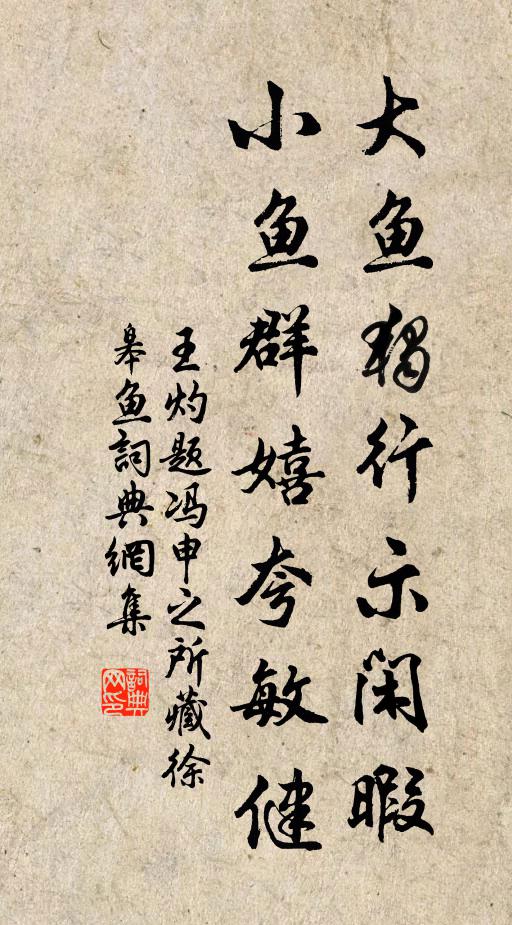 大鱼独行示闲暇
小鱼群嬉夸敏健
王灼题冯申之所藏徐
皋鱼詞典網集
詞典网印